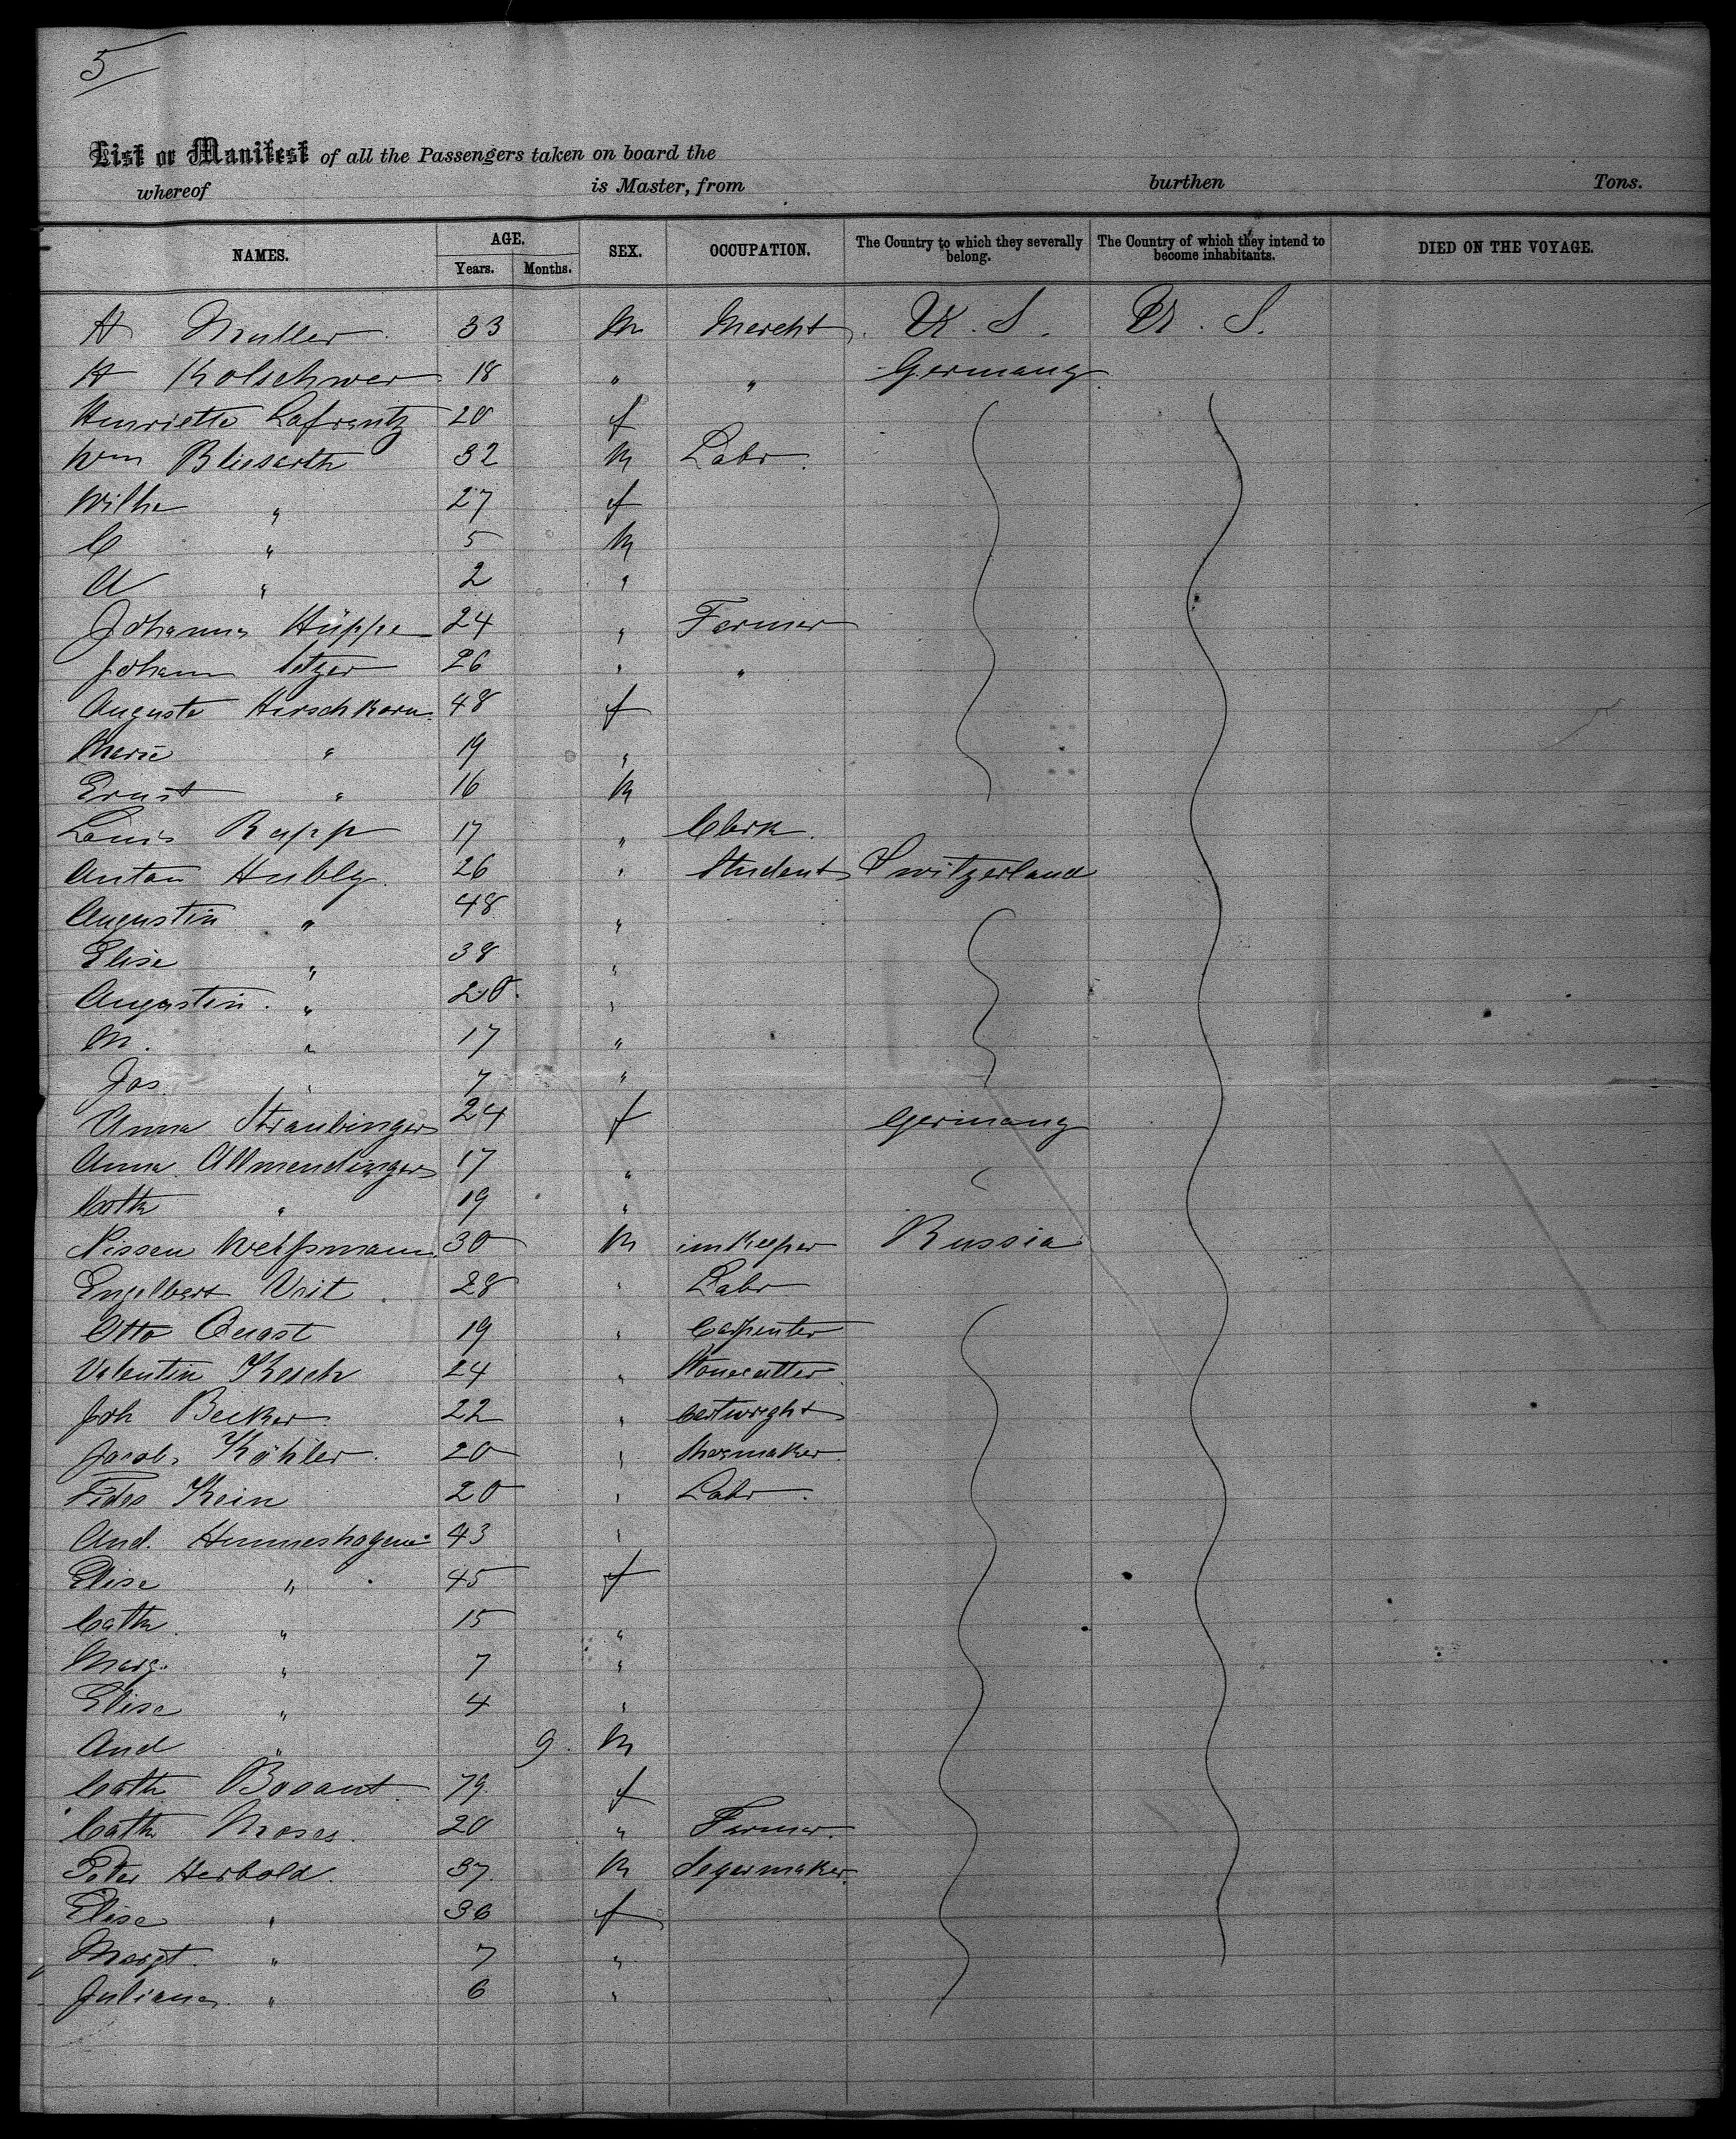 5
List or Manifest of all the Passengers taken on board the
whereof is Master, from burthen Tons.
NAMES. AGE. Years. Months. SEX. OCCUPATION. The Country to which they severally belong. The Country of which they intend to become inhabitants. DIED ON THE VOYAGE.
H Muller 33 M Mercht U. S. U. S.
H Kolschwer 18 " " Germany
Henriette Lafrentz 20 f
Wm Blieserth 32 M Labr.
Wilhe " 27 f
C " 5 M
A " 2 "
Johannes Hüppe 24 " Farmer
Johann 26 " "
Auguste Hirschkorn 48 f
Marie " 19 "
Ernst " 16 M
Louis Rapp 17 " Clerk.
Anton Hubly 26 " Student Switzerland
Augustin " 48 "
Elise " 38 "
Augustin " 20 "
M. " 17 "
Jos. " 7 "
Anna Straubinger 24 f Germany
Anna Allmendinger 17 "
Cath " 19 "
Nissen Weissmann 30 M innkeeper Russia
Engelbert Veit 28 " Labr
Otto Quast 19 " Carpenter
Valentin Kesch 24 " Stonecutter
Joh Becker 22 " Cartwright
Jacob Köhler 20 " Shoemaker
Fides Kein 20 " Labr.
And. Hunneshagen 43 "
Elise " 45 f
Cath. " 15 "
Marg. " 7 "
Elise " 4 "
And " 9 M
Cath Bosant 79 f
Cath Moses 20 " Farmer.
Peter Herbold. 37 M Segarmaker.
Elise " 36 f
Margt. " 7 "
Juliana " 6 "